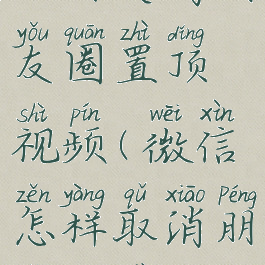 yǒu quān zhì dǐng
友圈置顶
shì pín wēi xìn
视频(微信
zěn yàng qǔ xiāo péng
怎样取消朋